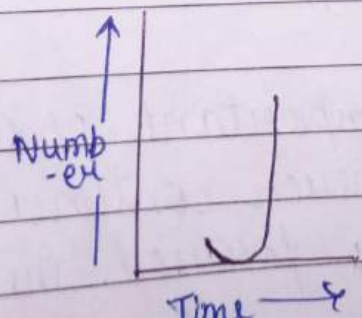 Numb
-er
Time